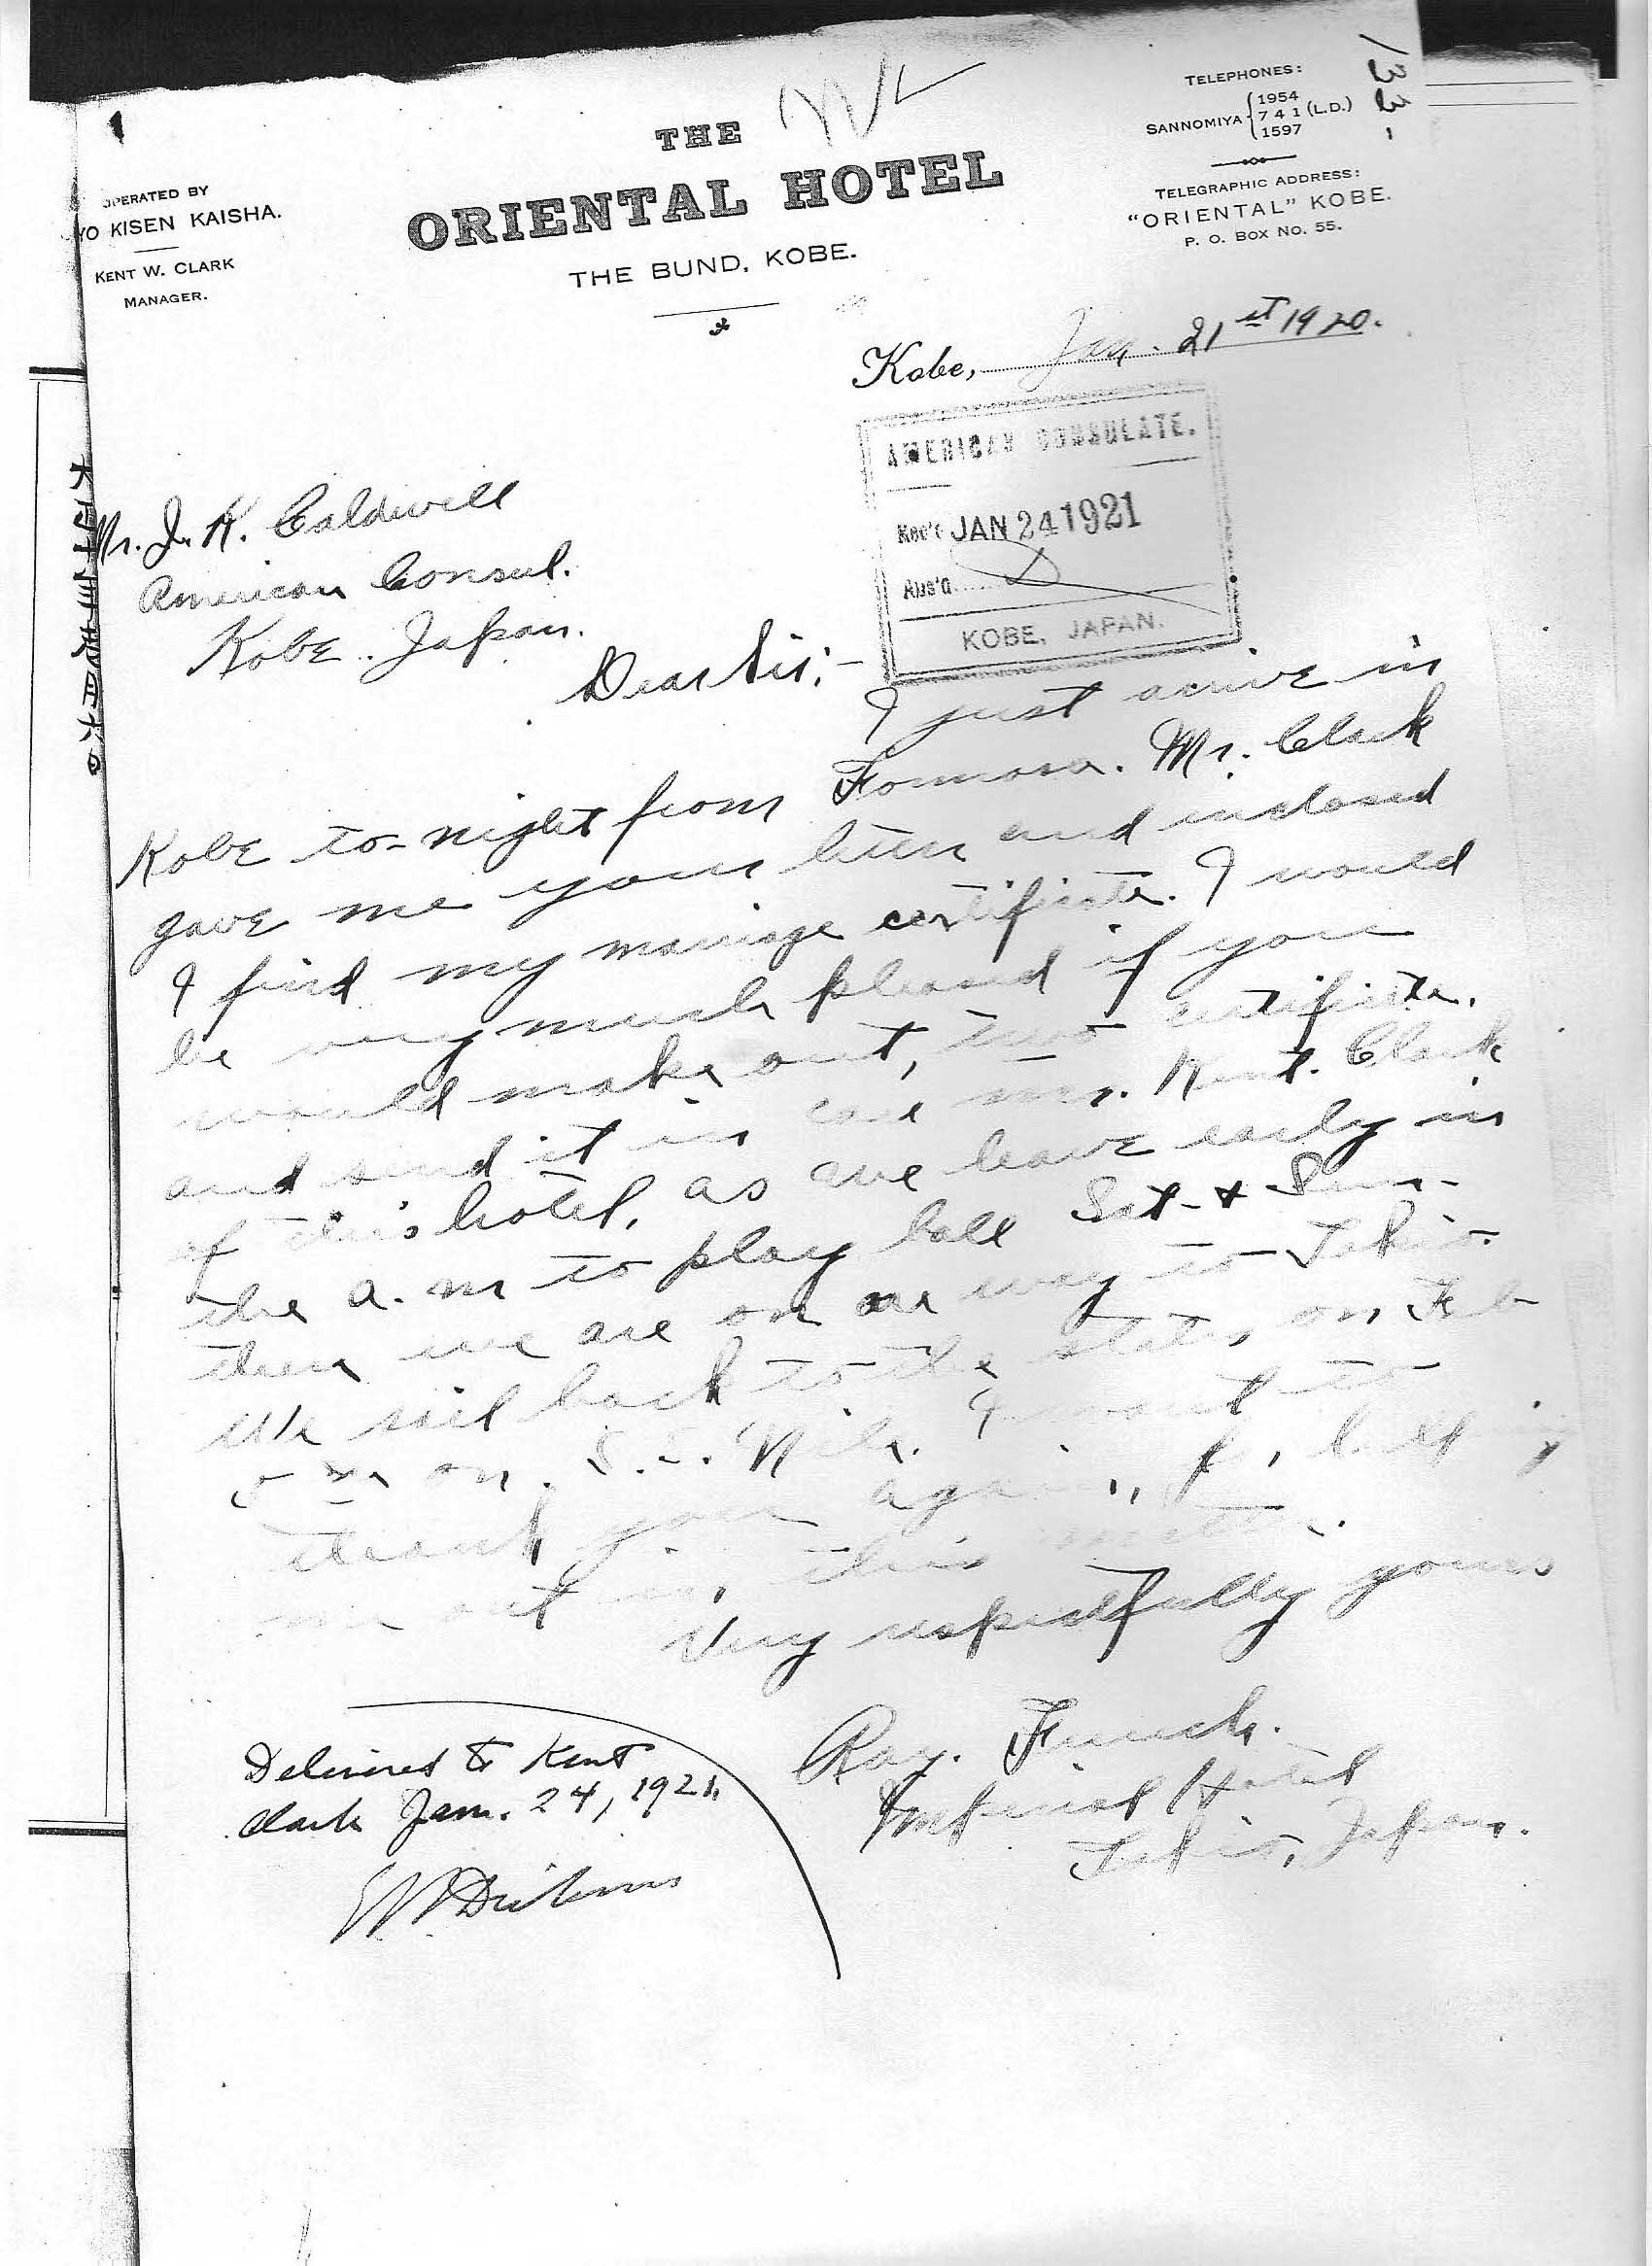 133.
OPERATED BY
YO KISEN KAISHA.
KENT W. CLARK
MANAGER.
THE
ORIENTAL HOTEL
THE BUND, KOBE.
TELEPHONES:
SANNOMIYA { 1954
741 (L.D.)
1597
TELEGRAPHIC ADDRESS:
"ORIENTAL" KOBE.
P. O. BOX NO. 55.
Kobe, Jan. 21st 1920.
AMERICAN CONSULATE.
Rec'd JAN 24 1921
Ans'd
KOBE, JAPAN.
Mr. J. K. Caldwell
American Consul.
Kobe. Japan.
Dear Sir:-
I just arrive in
Kobe to-night from Formosa. Mr. Clark
gave me your letter and inclosed
I find my marriage certificate. I would
be very much pleased if you
would make out, two certificate.
and send it in care Mr. Kent. Clark
of this hotel, as we leave early in
the a.m to play ball Sat- & Sun-
then we are on our way to Tokio.
We sail back to the states on Feb
5th on. S.S. Nile. I want to
thank you again, for helping
me out in this matter.
Very respectfully yours
Ray. French.
Imperial Hotel
Tokio, Japan.
Delivered to Kent
Clark Jan. 24, 1921.